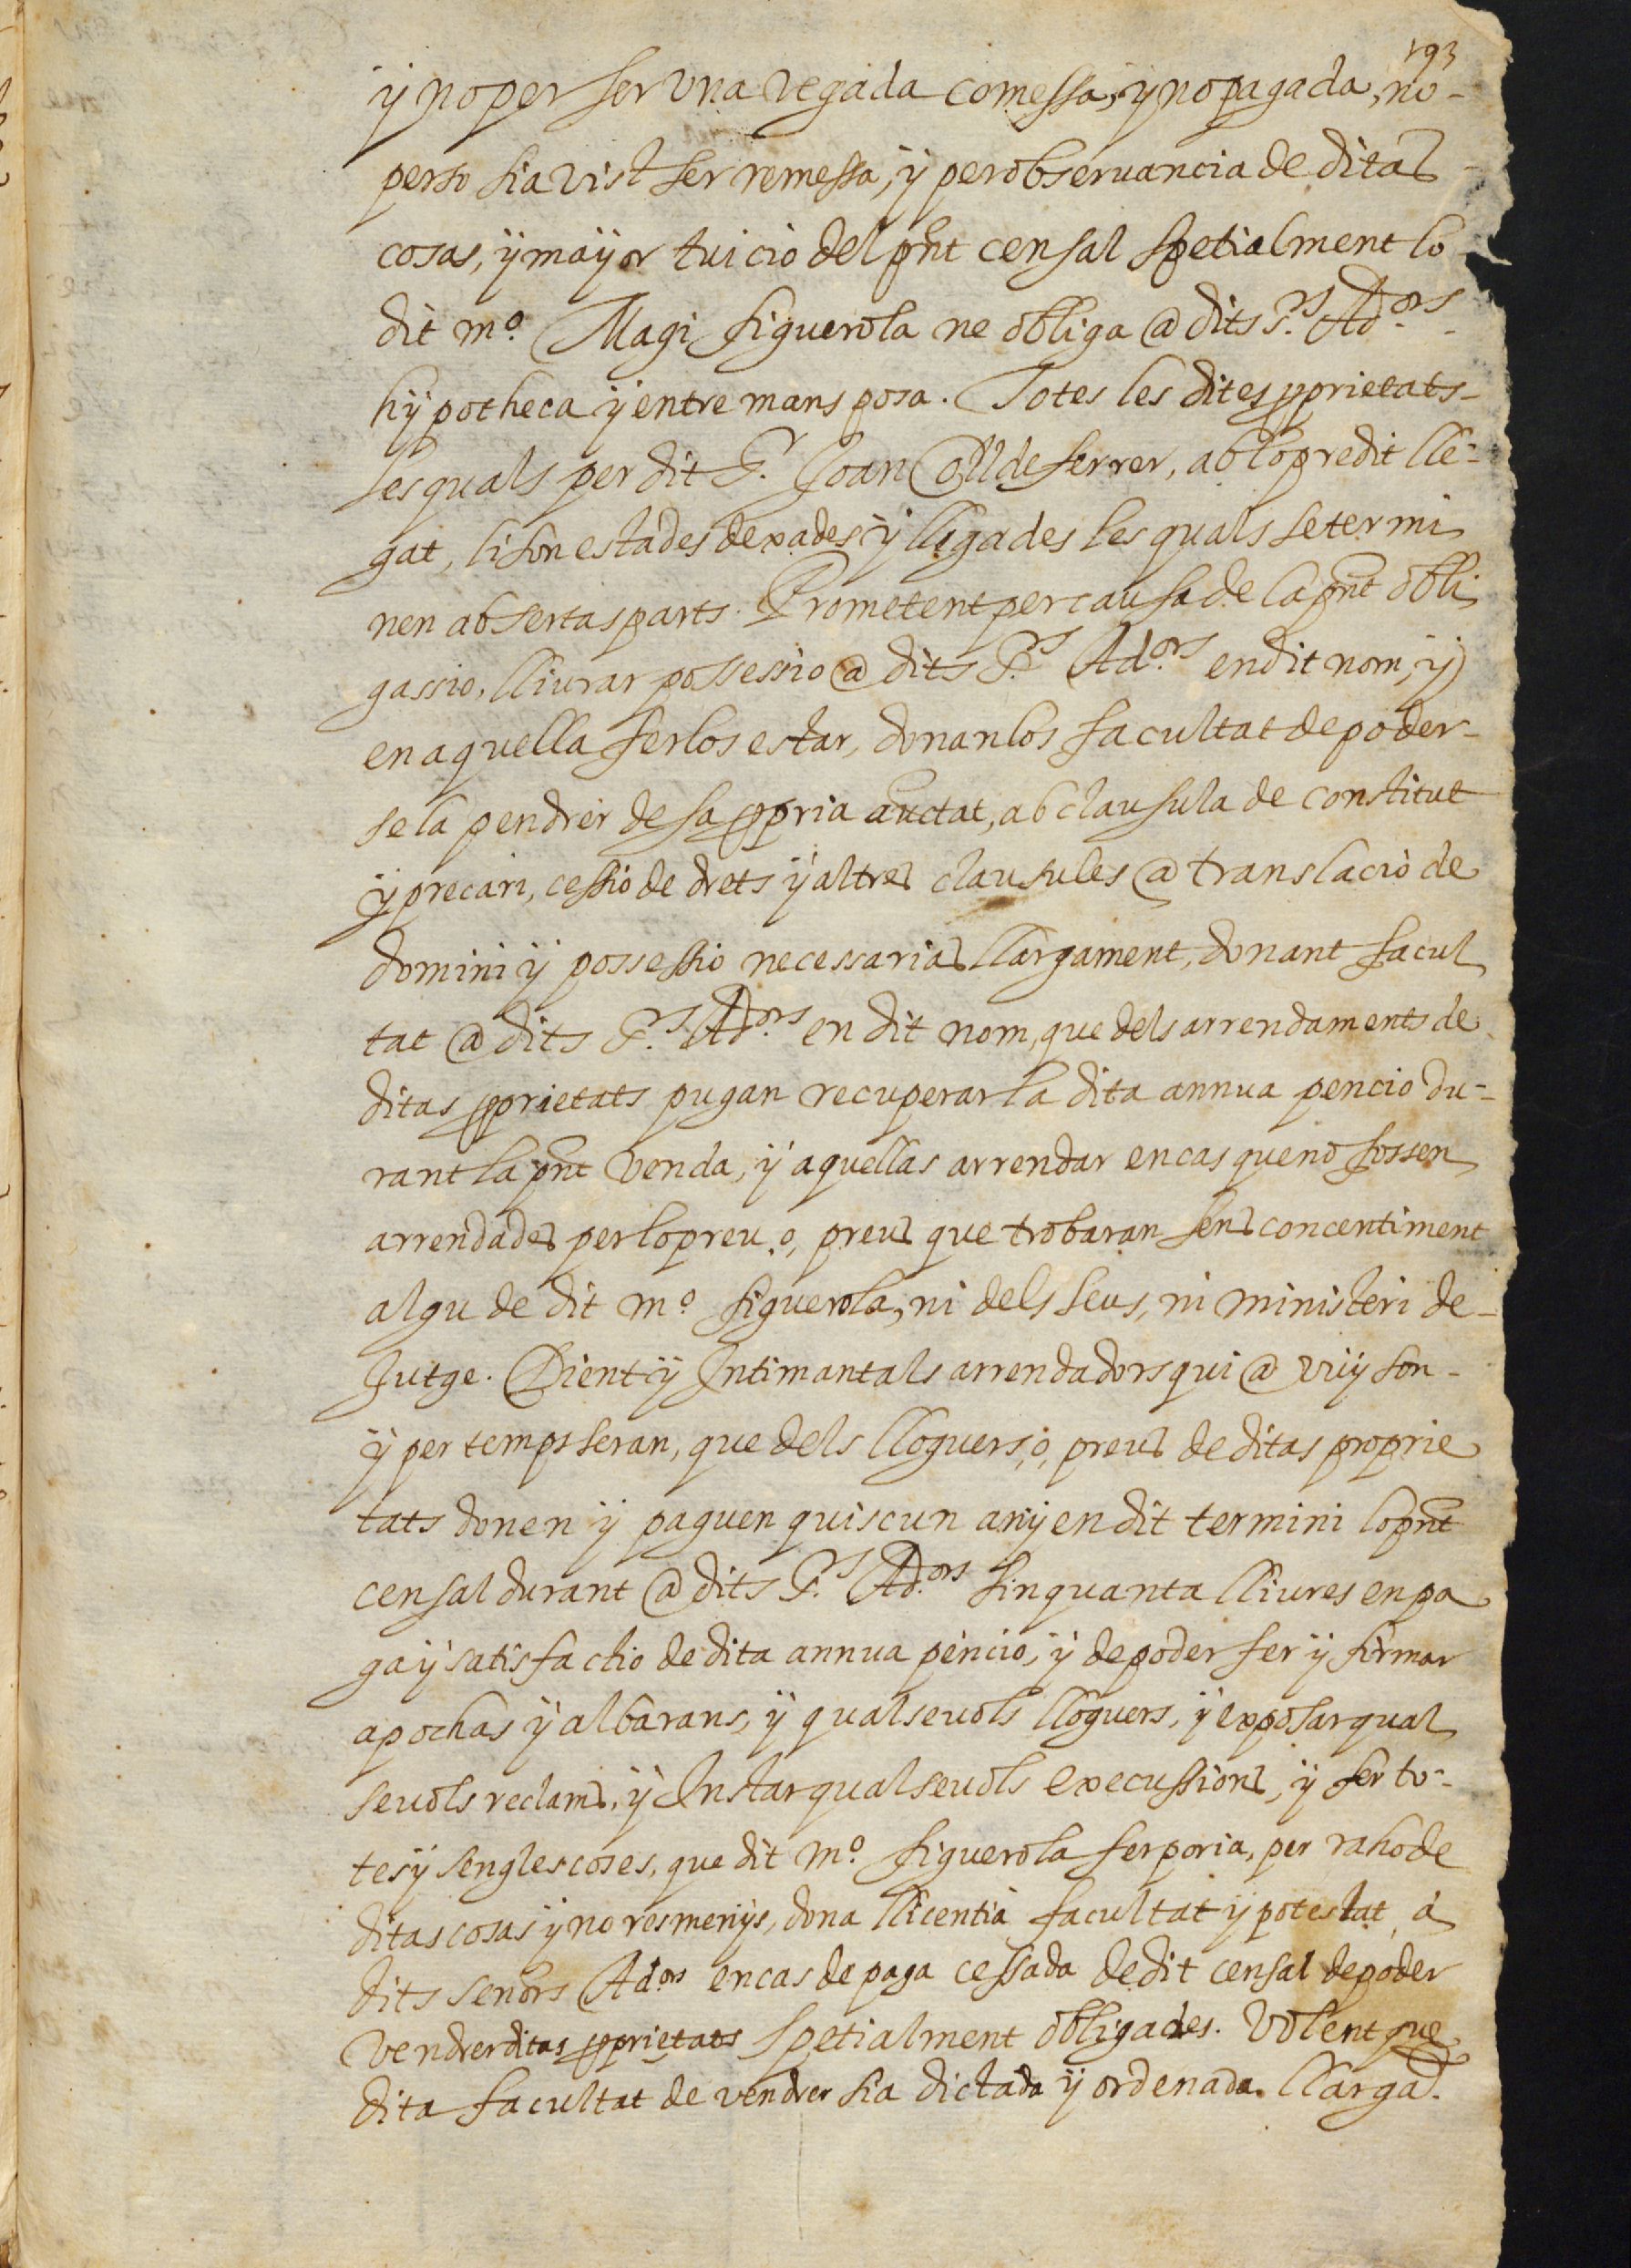 193
ÿ no per ser una vegada comessa, ÿ no pagada, no-
perso sia vist ser remessa, ÿ per observancia de ditas
cosas, ÿ maÿor tuicio del pnt censal spetialment lo
dit mº Magi figuerola ne obliga @ dits Srs Adors
hÿpotheca ÿ entre mans posa. Totes les dites pprietats
les quals per dit Sr Joan Coll de ferrer, ab lo predit lle-
gat, li son estades dexades ÿ lligades les quals se termi
nen ab sertas parts. Prometent per causa de la pnt obli
gassio, lliurar possessio @ dits Srs Adors en dit nom, ÿ
en aquella ferlos estar, donanlos facultat de poder-
sela pendrer de sa ppria auctat, ab clausula de constitut
ÿ precari, cessio de drets ÿ altres clausules @ translacio de
domini ÿ possessio necessarias llargament, donant facul
tat @ dits Srs Adors en dit nom, que dels arrendaments de
ditas pprietats pugan recuperar la dita annua pencio du-
rant la pnt venda, ÿ aquellas arrendar en cas que no fossen
arrendades per lo preu, o, preus que trobaran sens concentiment
algu de dit mº figuerola, ni dels seus, ni ministeri de-
Jutge. Dient ÿ Intimant als arrendadors qui @ vuÿ son-
ÿ per temps seran, que dels lloguers, o, preus de ditas proprie
tats donen ÿ paguen quiscun anÿ en dit termini lo pnt
censal durant @ dits Srs Adors sinquanta lliures en pa
ga ÿ satisfactio de dita annua pencio, ÿ de poder fer ÿ firmar
apochas ÿ albarans, ÿ qualsevols lloguers, ÿ exposar qual
sevols reclams, ÿ Instar qualsevols execussions, ÿ fer to-
tes ÿ sengles coses, que dit mº figuerola fer poria, per raho de
ditas cosas ÿ no resmenÿs, dona llicentia facultat ÿ potestat à
dits senors Adors en cas de paga cessada de dit censal de poder
vendrer ditas pprietats spetialment obligades. Volent que
dita facultat de vendrer sia dictada ÿ ordenada llargat.